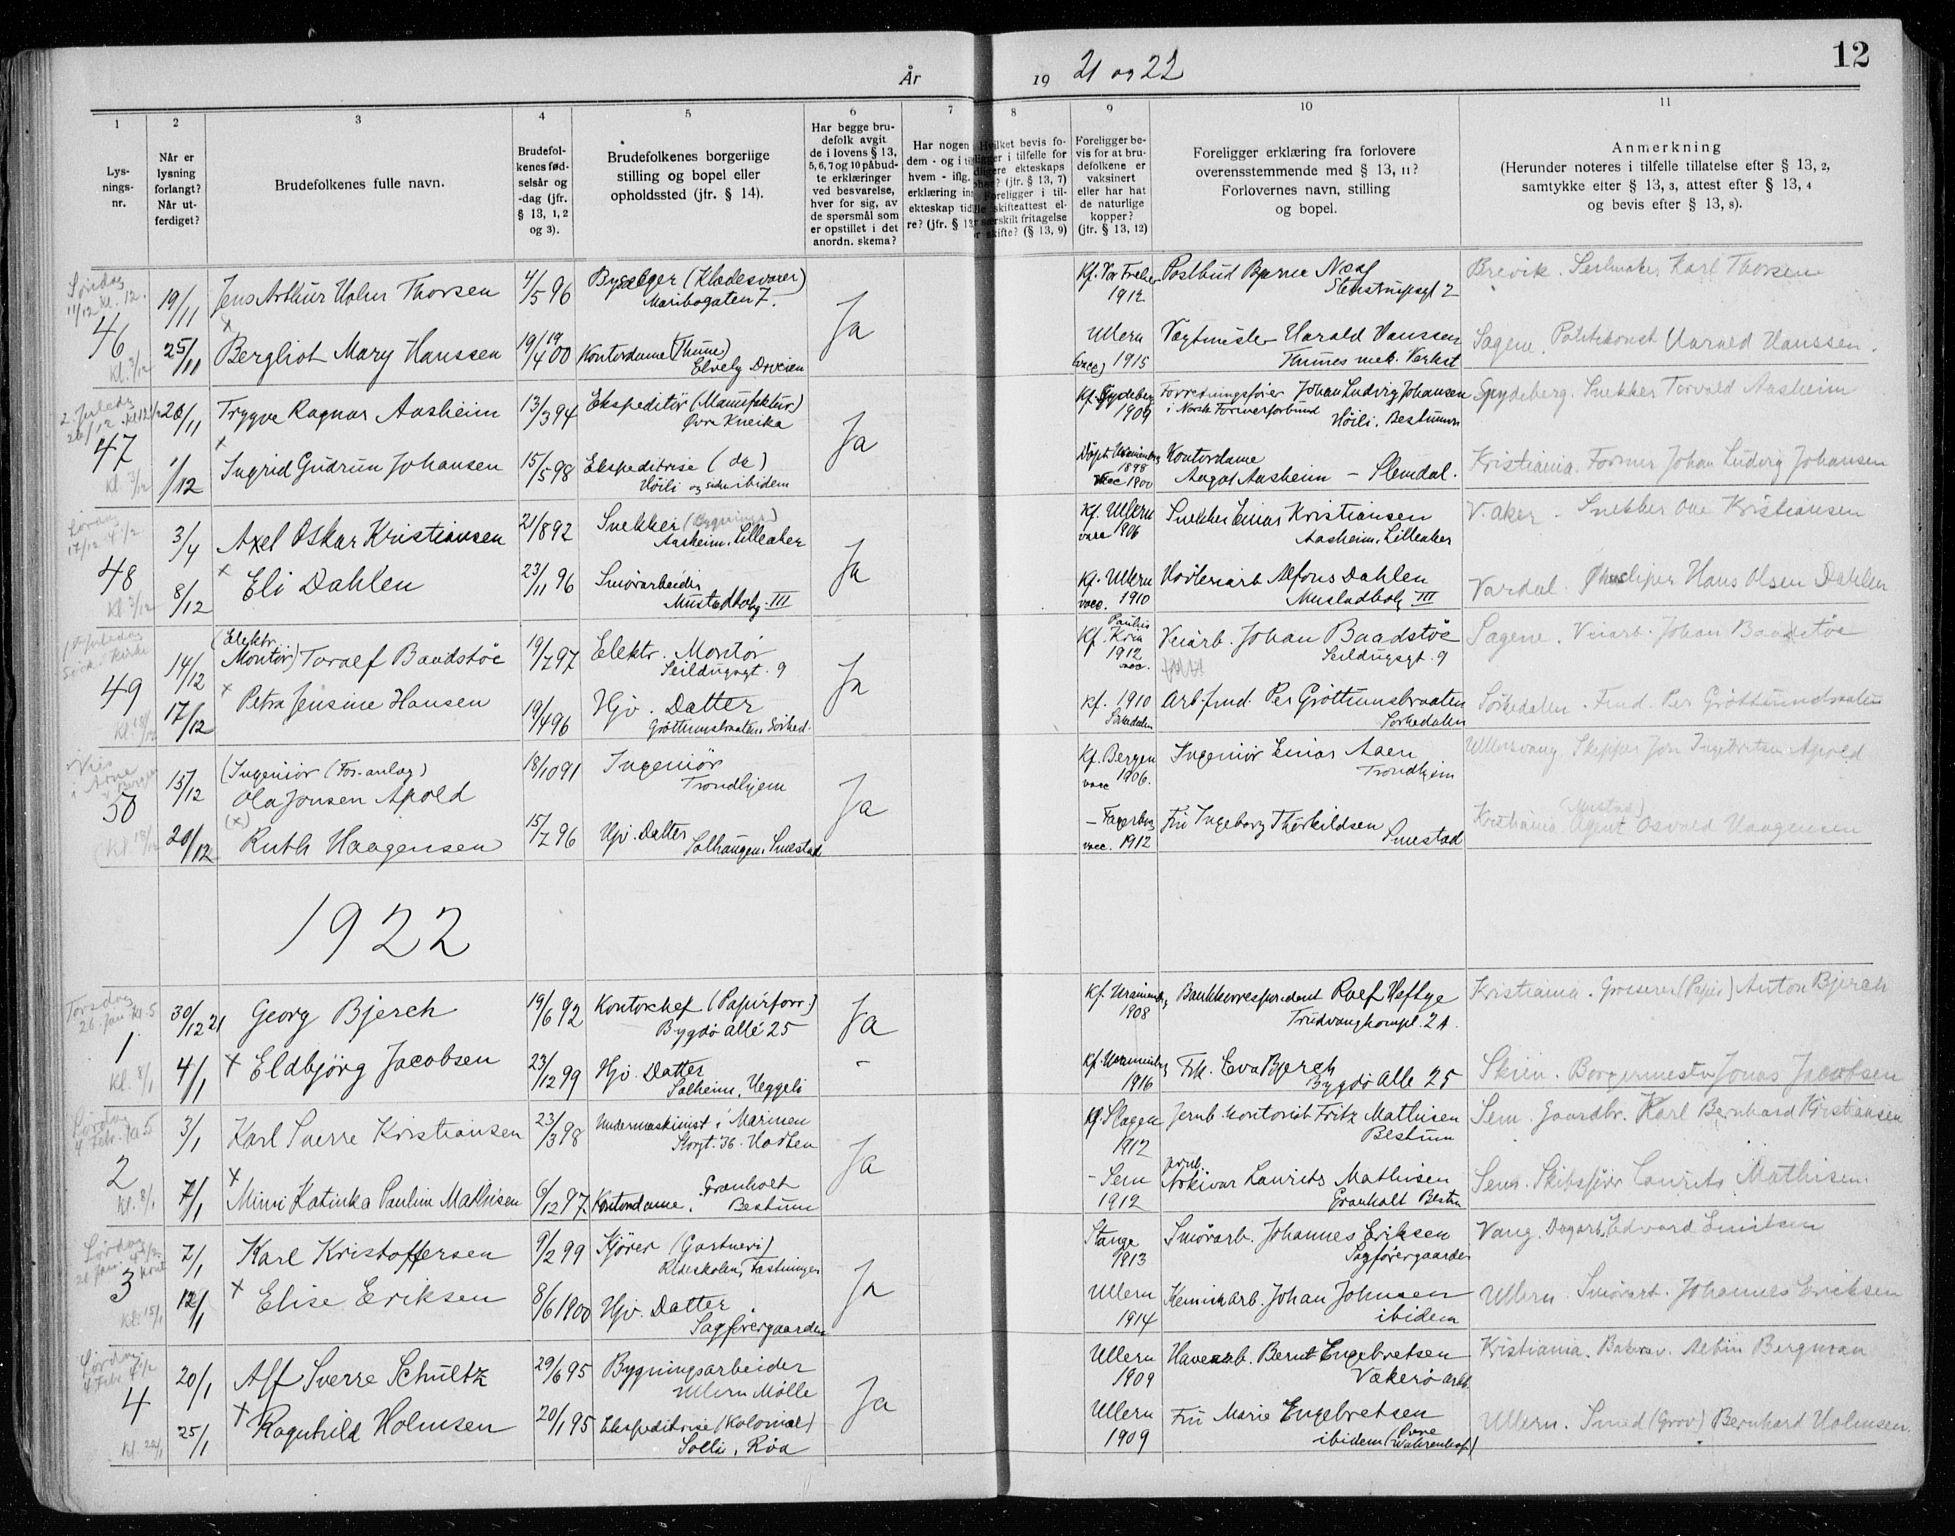 År 1921 og 22
12
1 2 3 4 5 6 7 8 9 10 11
Lys-
nings-
nr.
Når er
lysning
forlangt?
Når ut-
ferdiget?
Brudefolkenes fulle navn.
Brudefol-
kenes fød-
selsår og
-dag (jfr.
§ 13, 1, 2
og 3).
Brudefolkenes borgerlige
stilling og bopel eller
opholdssted (jfr. § 14).
Har begge bru-
defolk avgit
de i lovens § 13,
5, 6, 7 og 10 påbud-
te erklæringer
ved besvarelse,
hver for sig, av
de spørsmål som
er opstillet i det
anordn. skema?
Har nogen
dem - og i
hvem - iflg.
erklæring in
ekteskap tid
re? (jfr. § 13
Hvilket bevis fo-
ligger i tilfelle for
ekteskaps
(jfr. § 13, 7)
Foreligger i til-
skifteattest el-
særskilt fritagelse
skifte? (§ 13, 9)
Foreligger be-
vis for at bru-
defolkene er
vaksinert
eller har hat
de naturlige
kopper?
(jfr. § 13, 12)
Foreligger erklæring fra forlovere
overensstemmende med § 13, 11?
Forlovernes navn, stilling
og bopel.
Anmerkning
(Herunder noteres i tilfelle tillatelse efter § 13, 2,
samtykke efter § 13, 3, attest efter § 13, 4
og bevis efter § 13, 8).
Søndag kl. 12.
11/12
46
Kl. 3/12
19/11 Jens Arthur Holm Thorsen 4/5 96 (Klædesvarer)
Maribogaten 7.
Ja
Kf. Vor Frelser
1912
Postbud Bjarne Næss
Stenstrupsgt 2
Brevik. Seilmaker Karl Thorsen
25/11 x Bergliot Mary Hanssen 19/4 1900 Kontordame (Thune)
Elvely Drveien
Ullern
(vacc) 1915
Vagtmester Harald Hanssen
Thunes mek. Verkst
Sagene. Politikonst Harald Hanssen.
2 juledag
26/12 kl 12 1/2
47
Kl 3/12
26/11 Trygve Ragnar Aasheim 13/3 94 Ekspeditør (Manufaktur)
Øvre Kneika
Ja
Kf. Spydeberg
1909
Forretningsfører Johan Ludvig Johansen
i Norsk Formerforbund Høili, Bestum
Spydeberg. Snekker Torvald Aasheim
1/12 x Ingrid Gudrun Johansen 15/5 98 Ekspeditrise (do)
Høili og siden ibidem
Døpt Uranienborg
1898
vacc 1900
Kontordame
Aagot Aasheim - Slemdal.
Kristiania. Former Johan Ludvig Johansen
Lørdag
17/12 4 1/2
48
Kl 3/12
3/4 Axel Oskar Kristiansen 21/8 92 Snekker (Bygnings)
Aasheim, Lilleaker
Ja
Kf. Ullern
vacc 1906
Snekker Einar Kristiansen
Aasheim, Lilleaker
V. Aker. Snekker Ole Kristiansen
8/12 x Eli Dahlen 23/11 96 Smørarbeider
Mustadbolig III
Kf. Ullern
vacc. 1910
Høvleriarb Alfons Dahlen
Mustadbolg III
Vardal. Hans Olsen Dahlen
1ste juledag
Sørk. kirke
49
(Elektr.
14/12 Montør) Toralf Baadstøe 19/7 97 Elektr. Montør
Seildugsgt. 9
Ja
Paulus
Kf. Kria
1912
vacc.
Veiarb. Johan Baadstøe
Seildugsgt. 9
Sagene. Veiarb. Johan Baadstøe
17/12 x Petra Jensine Hansen 19/4 96 Hjv. Datter
Grøttumsbraaten, Sørked.
Kf. 1910
Sørkedalen
Arb.fmd. Per Grøttumsbraaten
Sørkedalen
Sørkedalen. Fmd. Per Grøttumsbraaten
50
Kl 18/12
15/12 (Ingeniør (For. anlæg)
Ola Jonsen Apold 18/10 91 Ingeniør
Trondhjem
Ja
Kf. Bergen
vacc 1906.
Ingeniør Einar Aaen
Trondhjem
Ullensvang. Skipper Jon Ingebritsen Apold
20/12 (x) Ruth Haagensen 15/7 96 Hjv. Datter
Solhaugen, Smestad
- Fagerborg
vacc. 1912
Fru Ingeborg Thorkildsen
Smestad
(Mustad)
Kristiania. Agent Osvald Haagensen
1922
Torsdag
26. Jan. kl. 5
1
Kl. 8/1
30/12 21 Georg Bjerch 19/6 92 Kontorchef (Papirforr.)
Bygdø allé 25
Ja
Kf. Uranienborg
1908
Bankkorrespondent Rolf Heftye
Trudvangkompl. 2 A.
Kristiania. Grosserer (Papir) Anton Bjerch
4/1 x Eldbjørg Jacobsen 23/12 99 Hjv. Datter
Solheim, Heggeli
-
Kf. Uranienborg
1916
Frk. Eva Bjerch
Bygdø Alle 25
Skien. Borgermester Jonas Jacobsen
Lørdag
4 Febr. kl 5
2
Kl. 8/1
3/1 Karl Sverre Kristiansen 23/3 98 Undermaskinist i Marinen
Storgt. 36. Horten
Ja
Kf. Slagen
1912
Jernb. kontorist Fritz Mathisen
Bestum
Sem. Gaardbr. Karl Bernhard Kristiansen
7/1 x Mimi Katinka Pauline Mathisen 6/12 97 Kontordame. Granholt
Bestum
- Sem
1912
Arkivar Laurits Mathisen
Granholt Bestum
Sem. Skibsfører Laurits Mathisen.
Lørdag
21 jan.
3
Kl. 15/1
7/1 Karl Kristoffersen 9/2 99 Kjører (Gartneri)
Rideskolen, Fæstningen
Ja
Stange
1913
Smørarb. Johannes Eriksen
Sagførergaarden
Vang. Dagarb. Edvard
12/1 x Elise Eriksen 8/6 1900 Hjv. Datter.
Sagførergaarden
Ullern
1914
Kemiskarb. Johan Johnsen
ibidem
Ullern. Smørarb. Johannes Eriksen
Lørdag
4 Febr 4 1/2
4
Kl. 22/1
20/1 Alf Sverre Schultz 29/6 95 Bygningsarbeider
Ullern Mølle
Ja
Ullern
1909
Havearb. Bernt Engebretsen
Vækerø
Kristiania. Albin Bergman
25/1 x Ragnhild Holmsen 20/1 95 Ekspeditrise (Kolonial)
Solli, Røa
Ullern
1909
Fru Marie Engebretsen
ibidem
Ullern. Smed (Grov) Bernhard Holmsen.